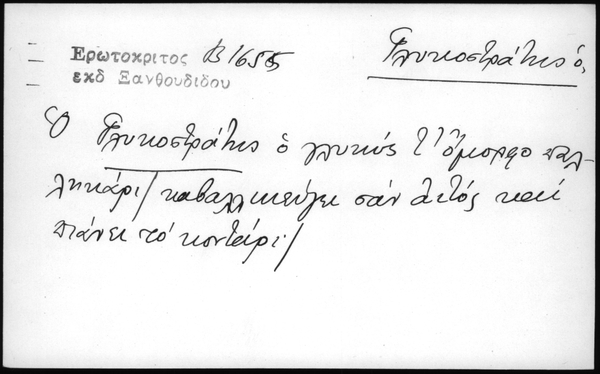 Ερωτοκριτος Β1655
εκδ Ξανθουδιδου
Γλυκοστράτης ὁ,
Ὁ Γλυκοστράτης ὁ γλυκύς τ' ὄμορφο παλ-
ληκάρι/ καβαλλικεύγει σάν ἀετός καί
πιάνει τό κοντάρι/